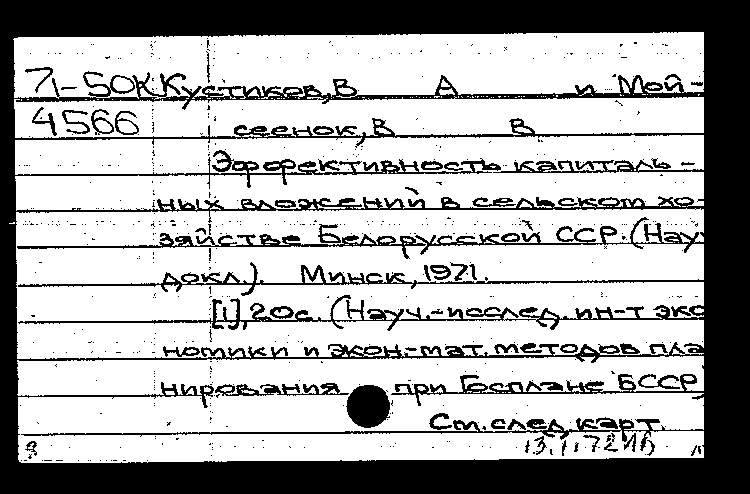 71-50К Кустиков, В А и Мой-
4566 сеенок, В В
Эффективность капиталь-
ных вложений в сельском хо-
зяйстве Белорусской ССР. (Науч
докл.). Минск, 1971.
[1], 20с. (Науч.-исслед. ин-т эко
номики и экон.-мат. методов пла
нирования при Госплане БССР)
См. след. карт.
13.1.72